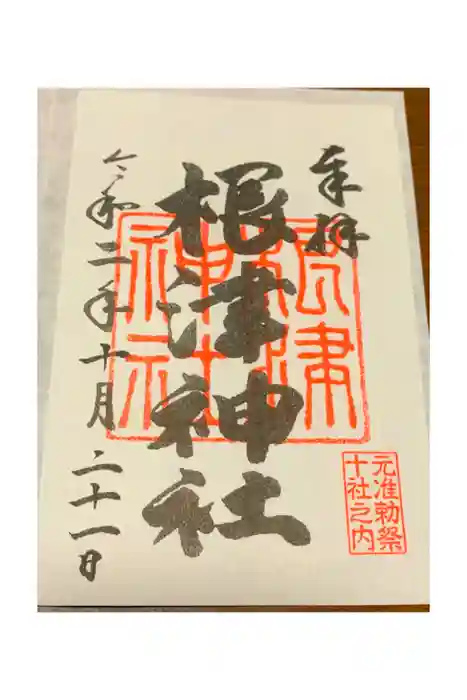 奉拝
根津神社
令和二年十月二十一日
根津
神社
元准勅祭
十社之内